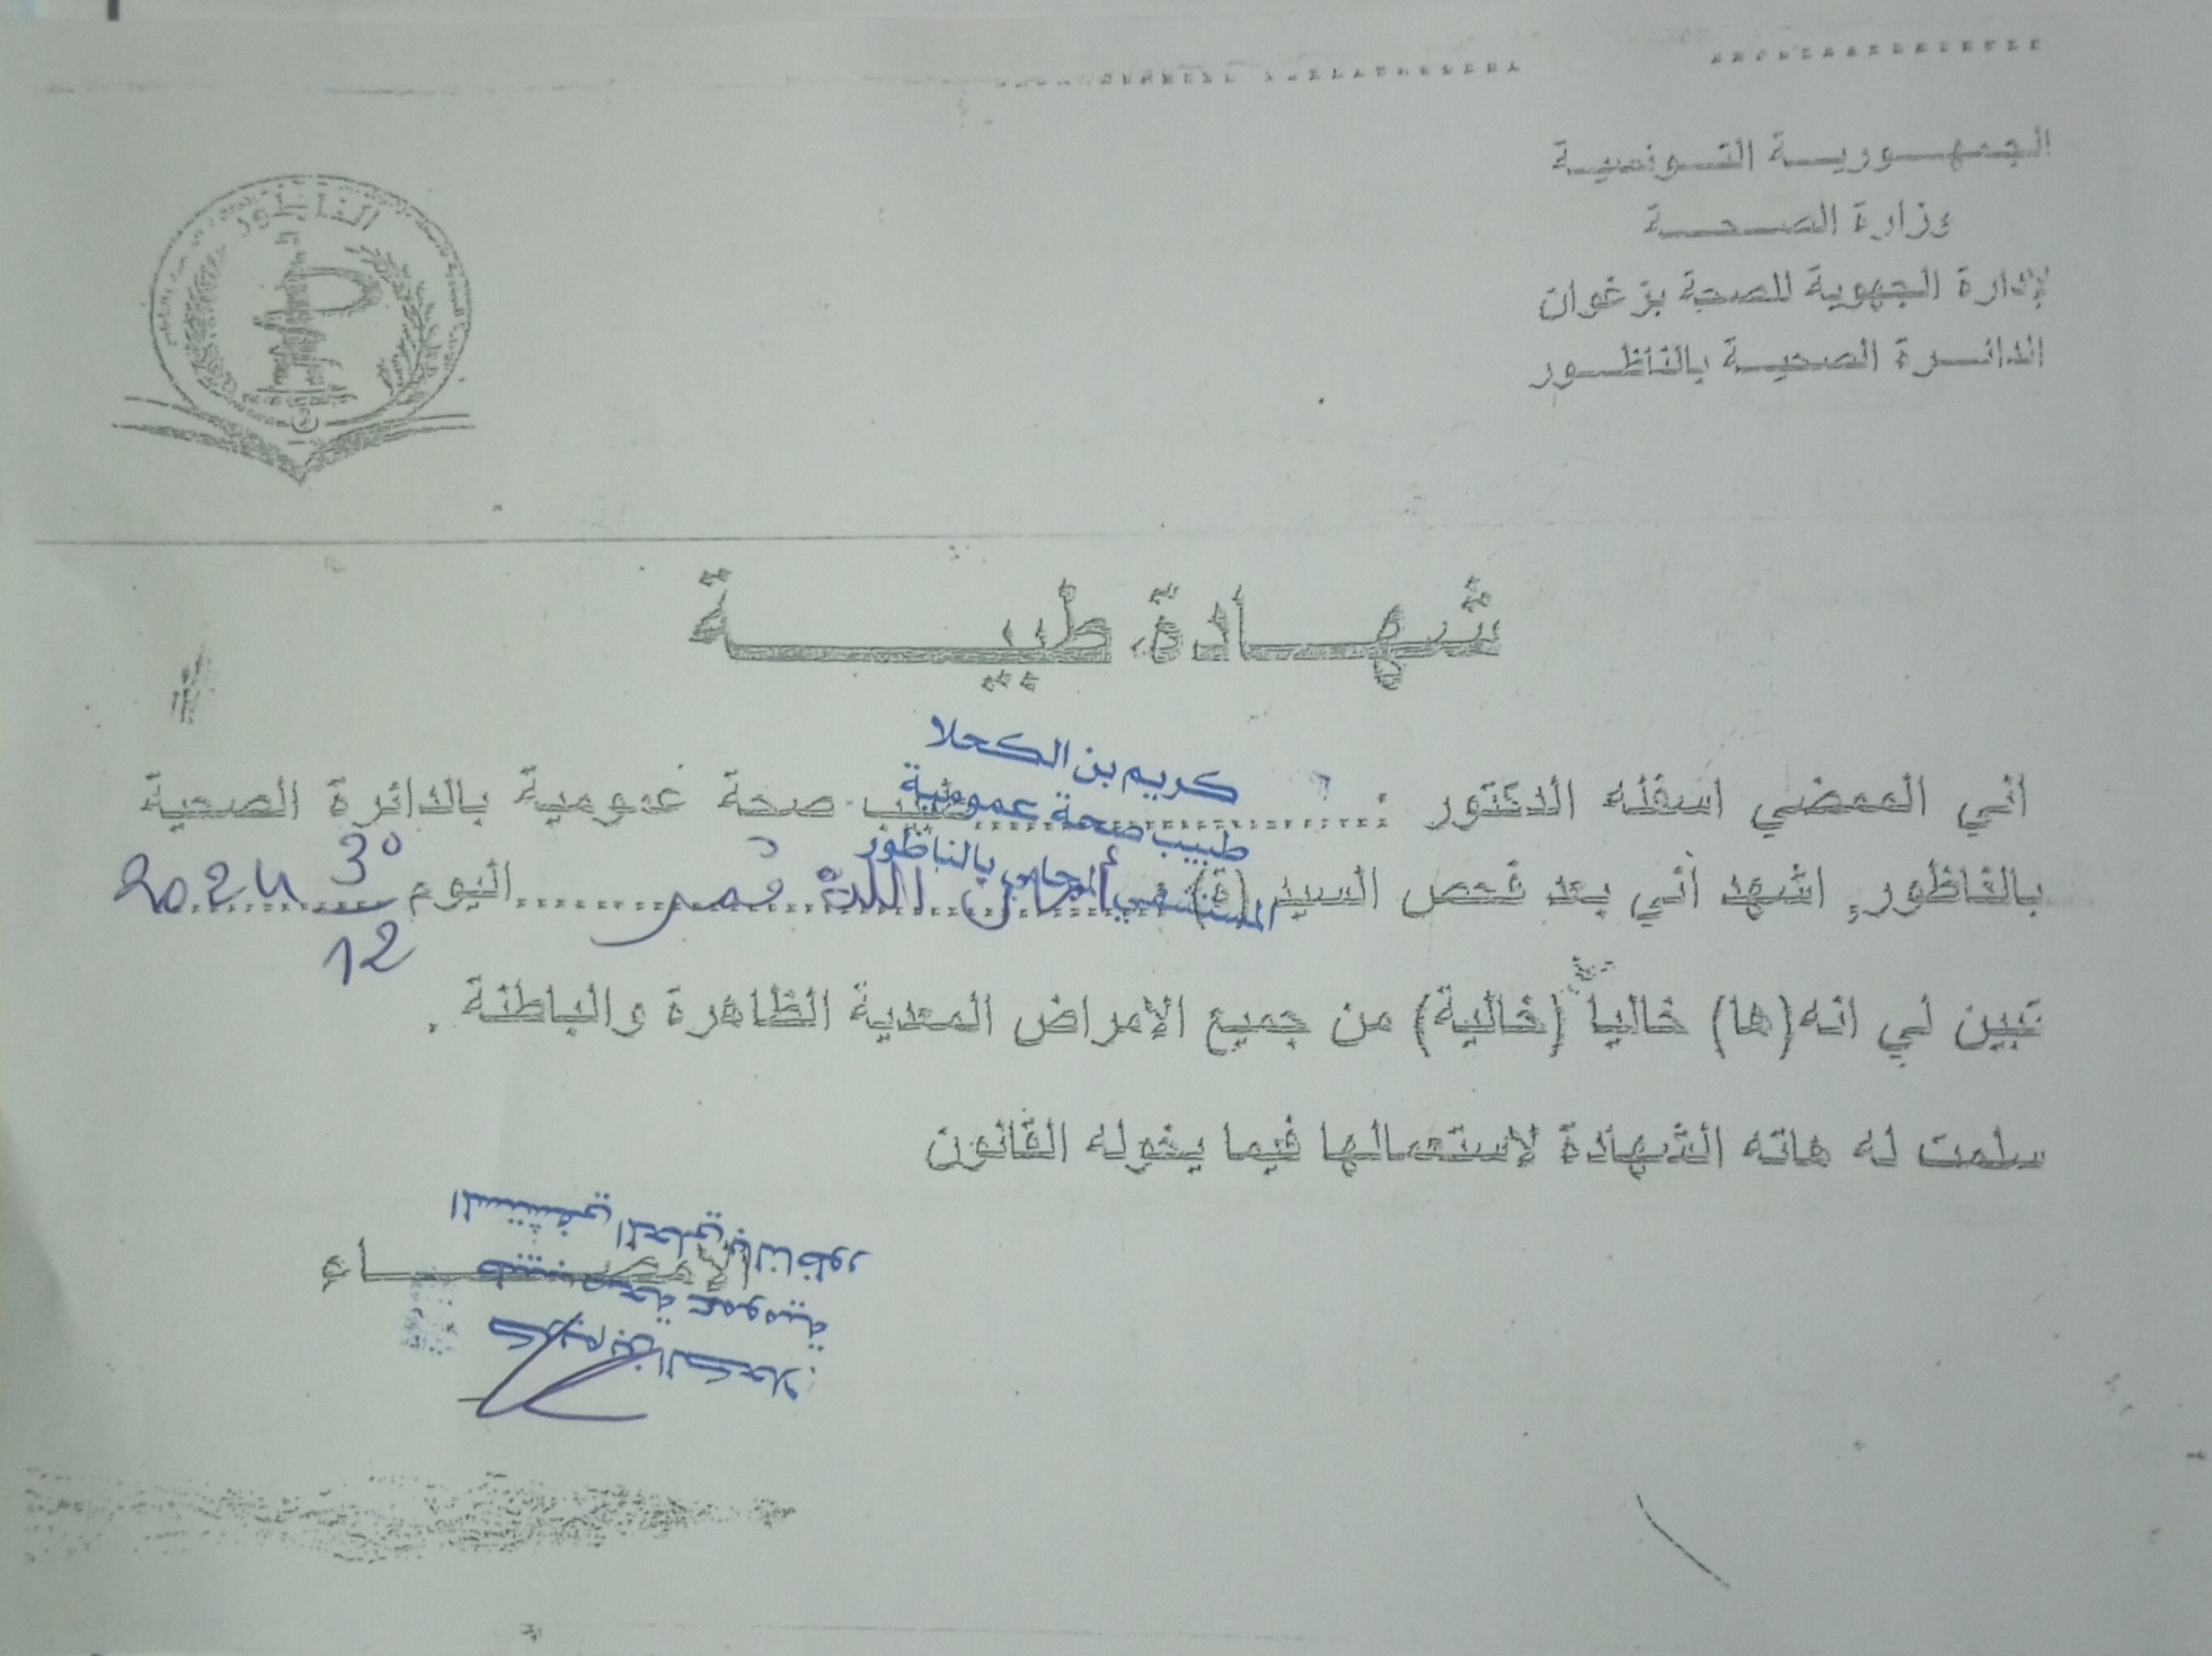 الجمهورية التونسية
وزارة الصحة
الإدارة الجهوية للصحة بزغوان
الدائرة الصحية بالناظور
الناظور
شهادة طبية
كريم بن الكحلا
طبيب صحة عمومية
المستشفى المحلي بالناظور
اني الممضي اسفله الدكتور : طبيب صحة عمومية بالدائرة الصحية
بالناظور, اشهد أني بعد فحص السيد (ة) اليوم 30/12 2024
تبين لي انه(ها) خالياً (خالية) من جميع الامراض المعدية الظاهرة والباطنة .
سلمت له هاته الشهادة لإستعمالها فيما يخوله القانون
الإمضاء
كريم بن الكحلا
طبيب صحة عمومية
المستشفى المحلي بالناظور